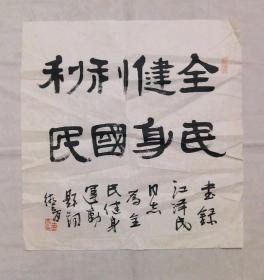 全民健身利國利民
書錄
江澤民
同志
為全
民健身
運動
題詞